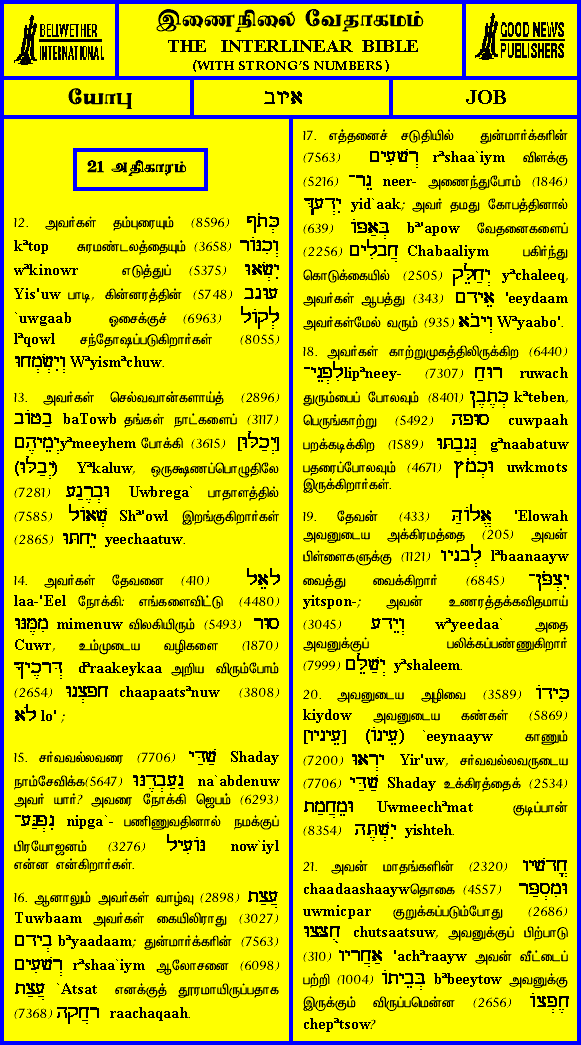 BELLWETHER
INTERNATIONAL
இணைநிலை வேதாகமம்
THE INTERLINEAR BIBLE
(WITH STRONG'S NUMBERS)
GOOD NEWS
PUBLISHERS
யோபு
איוב
JOB
21 அதிகாரம்
12. அவர்கள் தம்புரையும் (8596) כְּתֹף
kªtop சுரமண்டலத்தையும் (3658) וְכִנּוֹר
wªkinowr எடுத்துப் (5375) יִשְׂאוּ
Yis'uw பாடி, கின்னரத்தின் (5748) עוּגָב
`uwgaab ஓசைக்குச் (6963) לְקוֹל
lªqowl சந்தோஷப்படுகிறார்கள் (8055)
וְיִשְׂמְחוּ Wªyismªchuw.
13. அவர்கள் செல்வவான்களாய்த் (2896)
בַטּוֹב baTowb தங்கள் நாட்களைப் (3117)
יְמֵיהֶםyªmeeyhem போக்கி (3615) [וִיכַלּוּ]
(יְבַלּוּ) Yªkaluw, ஒருக்ஷணப்பொழுதிலே
(7281) וּבְרֶגַע Uwbrega` பாதாளத்தில்
(7585) שְׁאוֹל Shª'owl இறங்குகிறார்கள்
(2865) יֵחָתּוּ yeechaatuw.
14. அவர்கள் தேவனை (410) לָאֵל
laa-'Eel நோக்கி: எங்களைவிட்டு (4480)
מִמֶּנּוּ mimenuw விலகியிரும் (5493) סוּר
Cuwr, உம்முடைய வழிகளை (1870)
דְּרָכֶיךָ dªraakeykaa அறிய விரும்போம்
(2654) חָפָצְנוּ chaapaatsªnuw (3808)
לֹא lo' ;
15. சர்வவல்லவரை (7706) שַׁדַּי Shaday
நாம்சேவிக்க(5647) נַעַבְדֶנּוּ na`abdenuw
அவர் யார்? அவரை நோக்கி ஜெபம் (6293)
נִפְגַּע־ nipga`- பண்ணுவதினால் நமக்குப்
பிரயோஜனம் (3276) נוֹעִיל now`iyl
என்ன என்கிறார்கள்.
16. ஆனாலும் அவர்கள் வாழ்வு (2898) עֲצַת
Tuwbaam அவர்கள் கையிலிராது (3027)
בְיָדָם bªyaadaam; துன்மார்க்கரின் (7563)
רְשָׁעִים rªshaa`iym ஆலோசனை (6098)
עֲצַת `Atsat எனக்குத் தூரமாயிருப்பதாக
(7368) רָחֲקָה raachaqaah.
17. எத்தனைச் சடுதியில் துன்மார்க்கரின்
(7563) רְשָׁעִים rªshaa`iym விளக்கு
(5216) נֵר־ neer- அணைந்துபோம் (1846)
יִדְעָךְ yid`aak; அவர் தமது கோபத்தினால்
(639) בְּאַפּוֹ bª'apow வேதனைகளைப்
(2256) חֲבָלִים Chabaaliym பகிர்ந்து
கொடுக்கையில் (2505) יְחַלֵּק yªchaleeq,
அவர்கள் ஆபத்து (343) אֵידָם 'eeydaam
அவர்கள்மேல் வரும் (935) וְיָבֹא Wªyaabo'.
18. அவர்கள் காற்றுமுகத்திலிருக்கிற (6440)
לִפְנֵי־lipªneey- (7307) רוּחַ ruwach
துரும்பைப் போலவும் (8401) כְּתֶבֶן kªteben,
பெருங்காற்று (5492) סוּפָה cuwpaah
பறக்கடிக்கிற (1589) גְּנָבַתּוּ gªnaabatuw
பதரைப்போலவும் (4671) וּכְמֹץ uwkmots
இருக்கிறார்கள்.
19. தேவன் (433) אֱלוֹהַּ 'Elowah
அவனுடைய அக்கிரமத்தை (205) அவன்
பிள்ளைகளுக்கு (1121) לְבָנָיו lªbaanaayw
வைத்து வைக்கிறார் (6845) יִצְפֹּן־
yitspon-; அவன் உணரத்தக்கவிதமாய்
(3045) וְיֵדָע wªyeedaa` அதை
அவனுக்குப் பலிக்கப்பண்ணுகிறார்
(7999) יְשַׁלֵּם yªshaleem.
20. அவனுடைய அழிவை (3589) כִּידוֹ
kiydow அவனுடைய கண்கள் (5869)
[עֵינָיו] (עֵינוֹ) `eeynaayw காணும்
(7200) יִרְאוּ Yir'uw, சர்வவல்லவருடைய
(7706) שַׁדַּי Shaday உக்கிரத்தைக் (2534)
וּמֵחֲמַת Uwmeechªmat குடிப்பான்
(8354) יִשְׁתֶּה yishteh.
21. அவன் மாதங்களின் (2320) חֳדָשָׁיו
chaadaashaaywதொகை (4557) וּמִסְפַּר
uwmicpar குறுக்கப்படும்போது (2686)
חֻצָּצוּ chutsaatsuw, அவனுக்குப் பிற்பாடு
(310) אַחֲרָיו 'achªraayw அவன் வீட்டைப்
பற்றி (1004) בְּבֵיתוֹ bªbeeytow அவனுக்கு
இருக்கும் விருப்பமென்ன (2656) חֶפְצוֹ
chepªtsow?